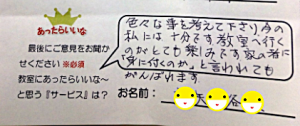 あったらいいな
最後にご意見をお聞か
せください ※必須
教室にあったらいいな～
と思う『サービス』は？
色々な事も考えて下さり今の
私には十分です教室へ行く
のがとても楽しみです家の者に
「身に付くのか」と言われても
がんばれます
お名前：